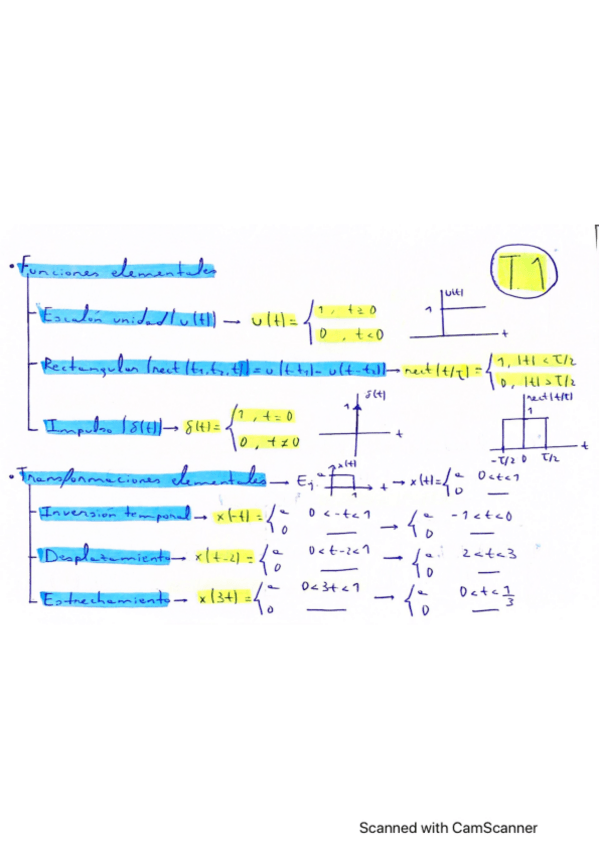 • Funciones elementales
T1
Escalón unidad (u(t)) → u(t) = { 1, t ≥ 0
0, t < 0
u(t)
1
t
Rectangular (rect(t₁, t₂, t)) = u(t-t₁) - u(t-t₂) → rect(t/τ) = { 1, |t| < τ/2
0, |t| > τ/2
Impulso (δ(t)) → δ(t) = { 1, t = 0
0, t ≠ 0
δ(t)
1
t
rect(t/τ)
1
-τ/2 0 τ/2
t
• Transformaciones elementales → Ej
x(t)
a
1
t
→ x(t) = { a 0 < t < 1
0 __
Inversión temporal → x(-t) = { a 0 < -t < 1 → { a -1 < t < 0
0 __ 0 __
Desplazamiento → x(t-2) = { a 0 < t-2 < 1 → { a 2 < t < 3
0 __ 0 __
Estrechamiento → x(3t) = { a 0 < 3t < 1 → { a 0 < t < 1/3
0 __ 0 __
Scanned with CamScanner